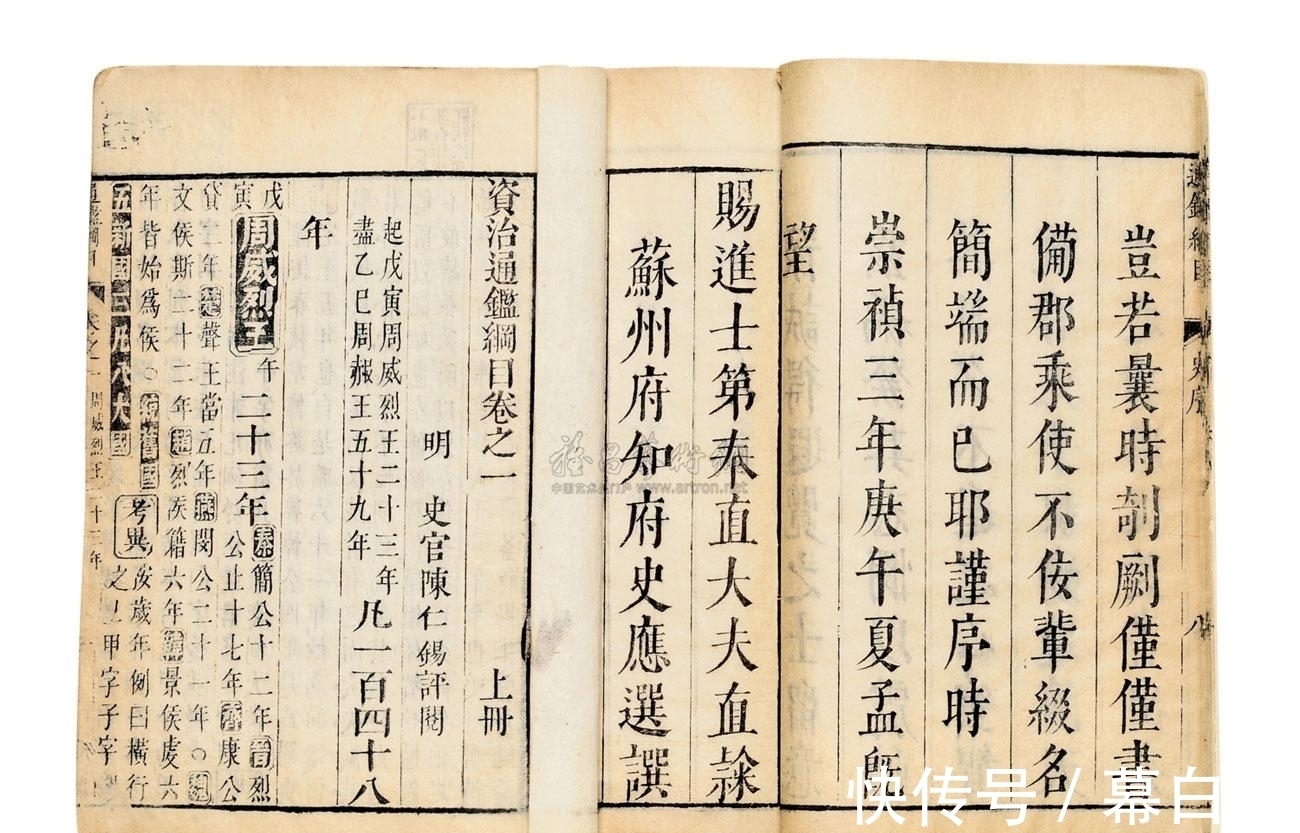 通鑑綱目
史序
八
豈若曩時剞劂僅僅書
備郡乘使不佞輩綴名
簡端而已耶謹序時
崇禎三年庚午夏孟旣
望
賜進士第奉直大夫直隸
蘇州府知府史應選譔
資治通鑑綱目卷之一 上冊
明 史官陳仁錫評閱
起戊寅周威烈王二十三年
盡乙巳周赧王五十九年
凡一百四十八
年
戊
寅
周威烈王午二十三年
秦簡公十二年晉烈
公止十七年齊康公
貸二年楚聲王當五年燕閔公三十一年○魏
文侯斯二十二年趙烈侯籍六年韓景侯虔六
年皆始爲侯○統舊國
五新國三凡八大國
考異
歲年例曰橫行
之上甲字子字
通鑑綱目 卷之一 周威烈王二十三年
www.artron.net
快传号 / 幕白